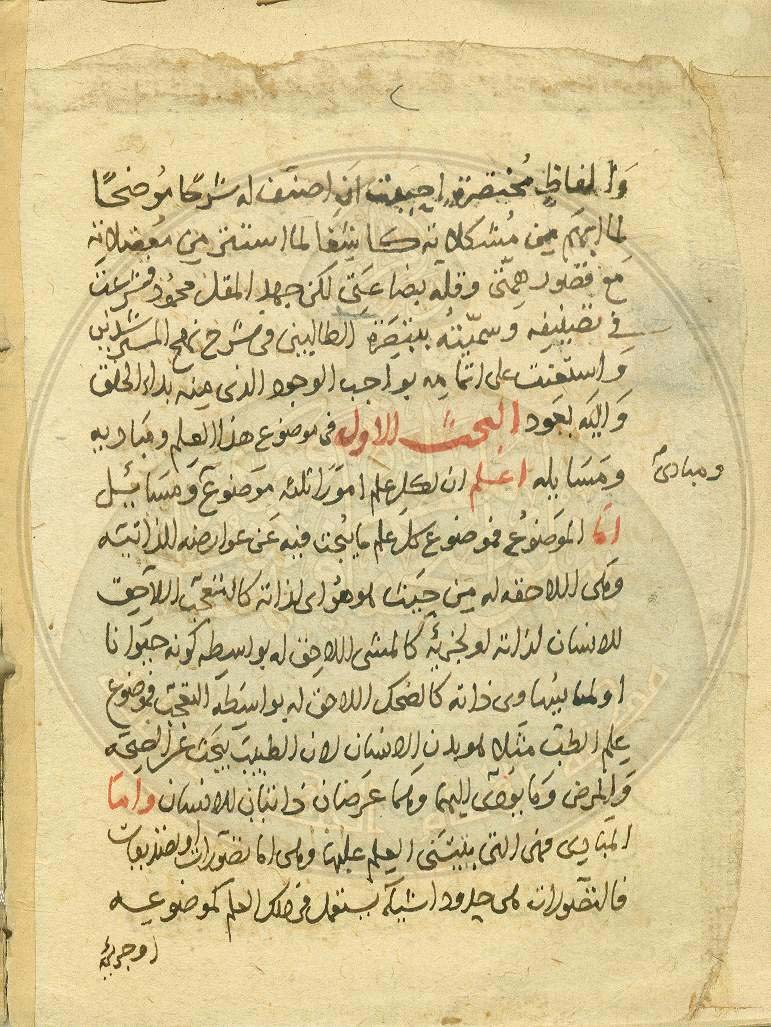 والفاظٍ مختصرةٍ احببت ان اصنف له شرحًا موضحًا
لما ابهم من مشكلاته كاشفا لما استتر من معضلاته
مع قصور همتى وقلة بضاعتى لكن جهد المقل محمود فشرعت
في تصنيفه وسميّته بتبصرة الطالبين فى شرح نهج المسترشدين
واستعنت على اتمامه بواجب الوجود الذى منه بداء الخلق
واليه يعود البحث الاول فى موضوع هذا العلم ومباديه
ومسايله اعلم ان لكل علم امورًا ثلثه موضوع ومسائيل
ومبادئ
امّا الموضوع فموضوع كل علم ما يبحث فيه عن عوارضه الذاتيته
وهى اللاحقه له من حيث هو هو اى لذاته كالتعجب اللاحق
للانسان لذاته او لجزئه كالمشى اللاحق له بواسطه كونه حيوانا
او لما يساوى ذاته كالضحك اللاحق له بواسطه التعجب فموضوع
علم الطب مثلا هو بدن الانسان لان الطبيب يبحث عن الصحه
والمرض وما يؤدى اليهما وهما عرضان ذاتيان للانسان وامّا
المبادى فهى التى يبتنى العلم عليها وهى اما تصورات او تصديقات
فالتصورات هى حدود اشياء يستعمل فى ذلك العلم كموضوعه
او جزئه